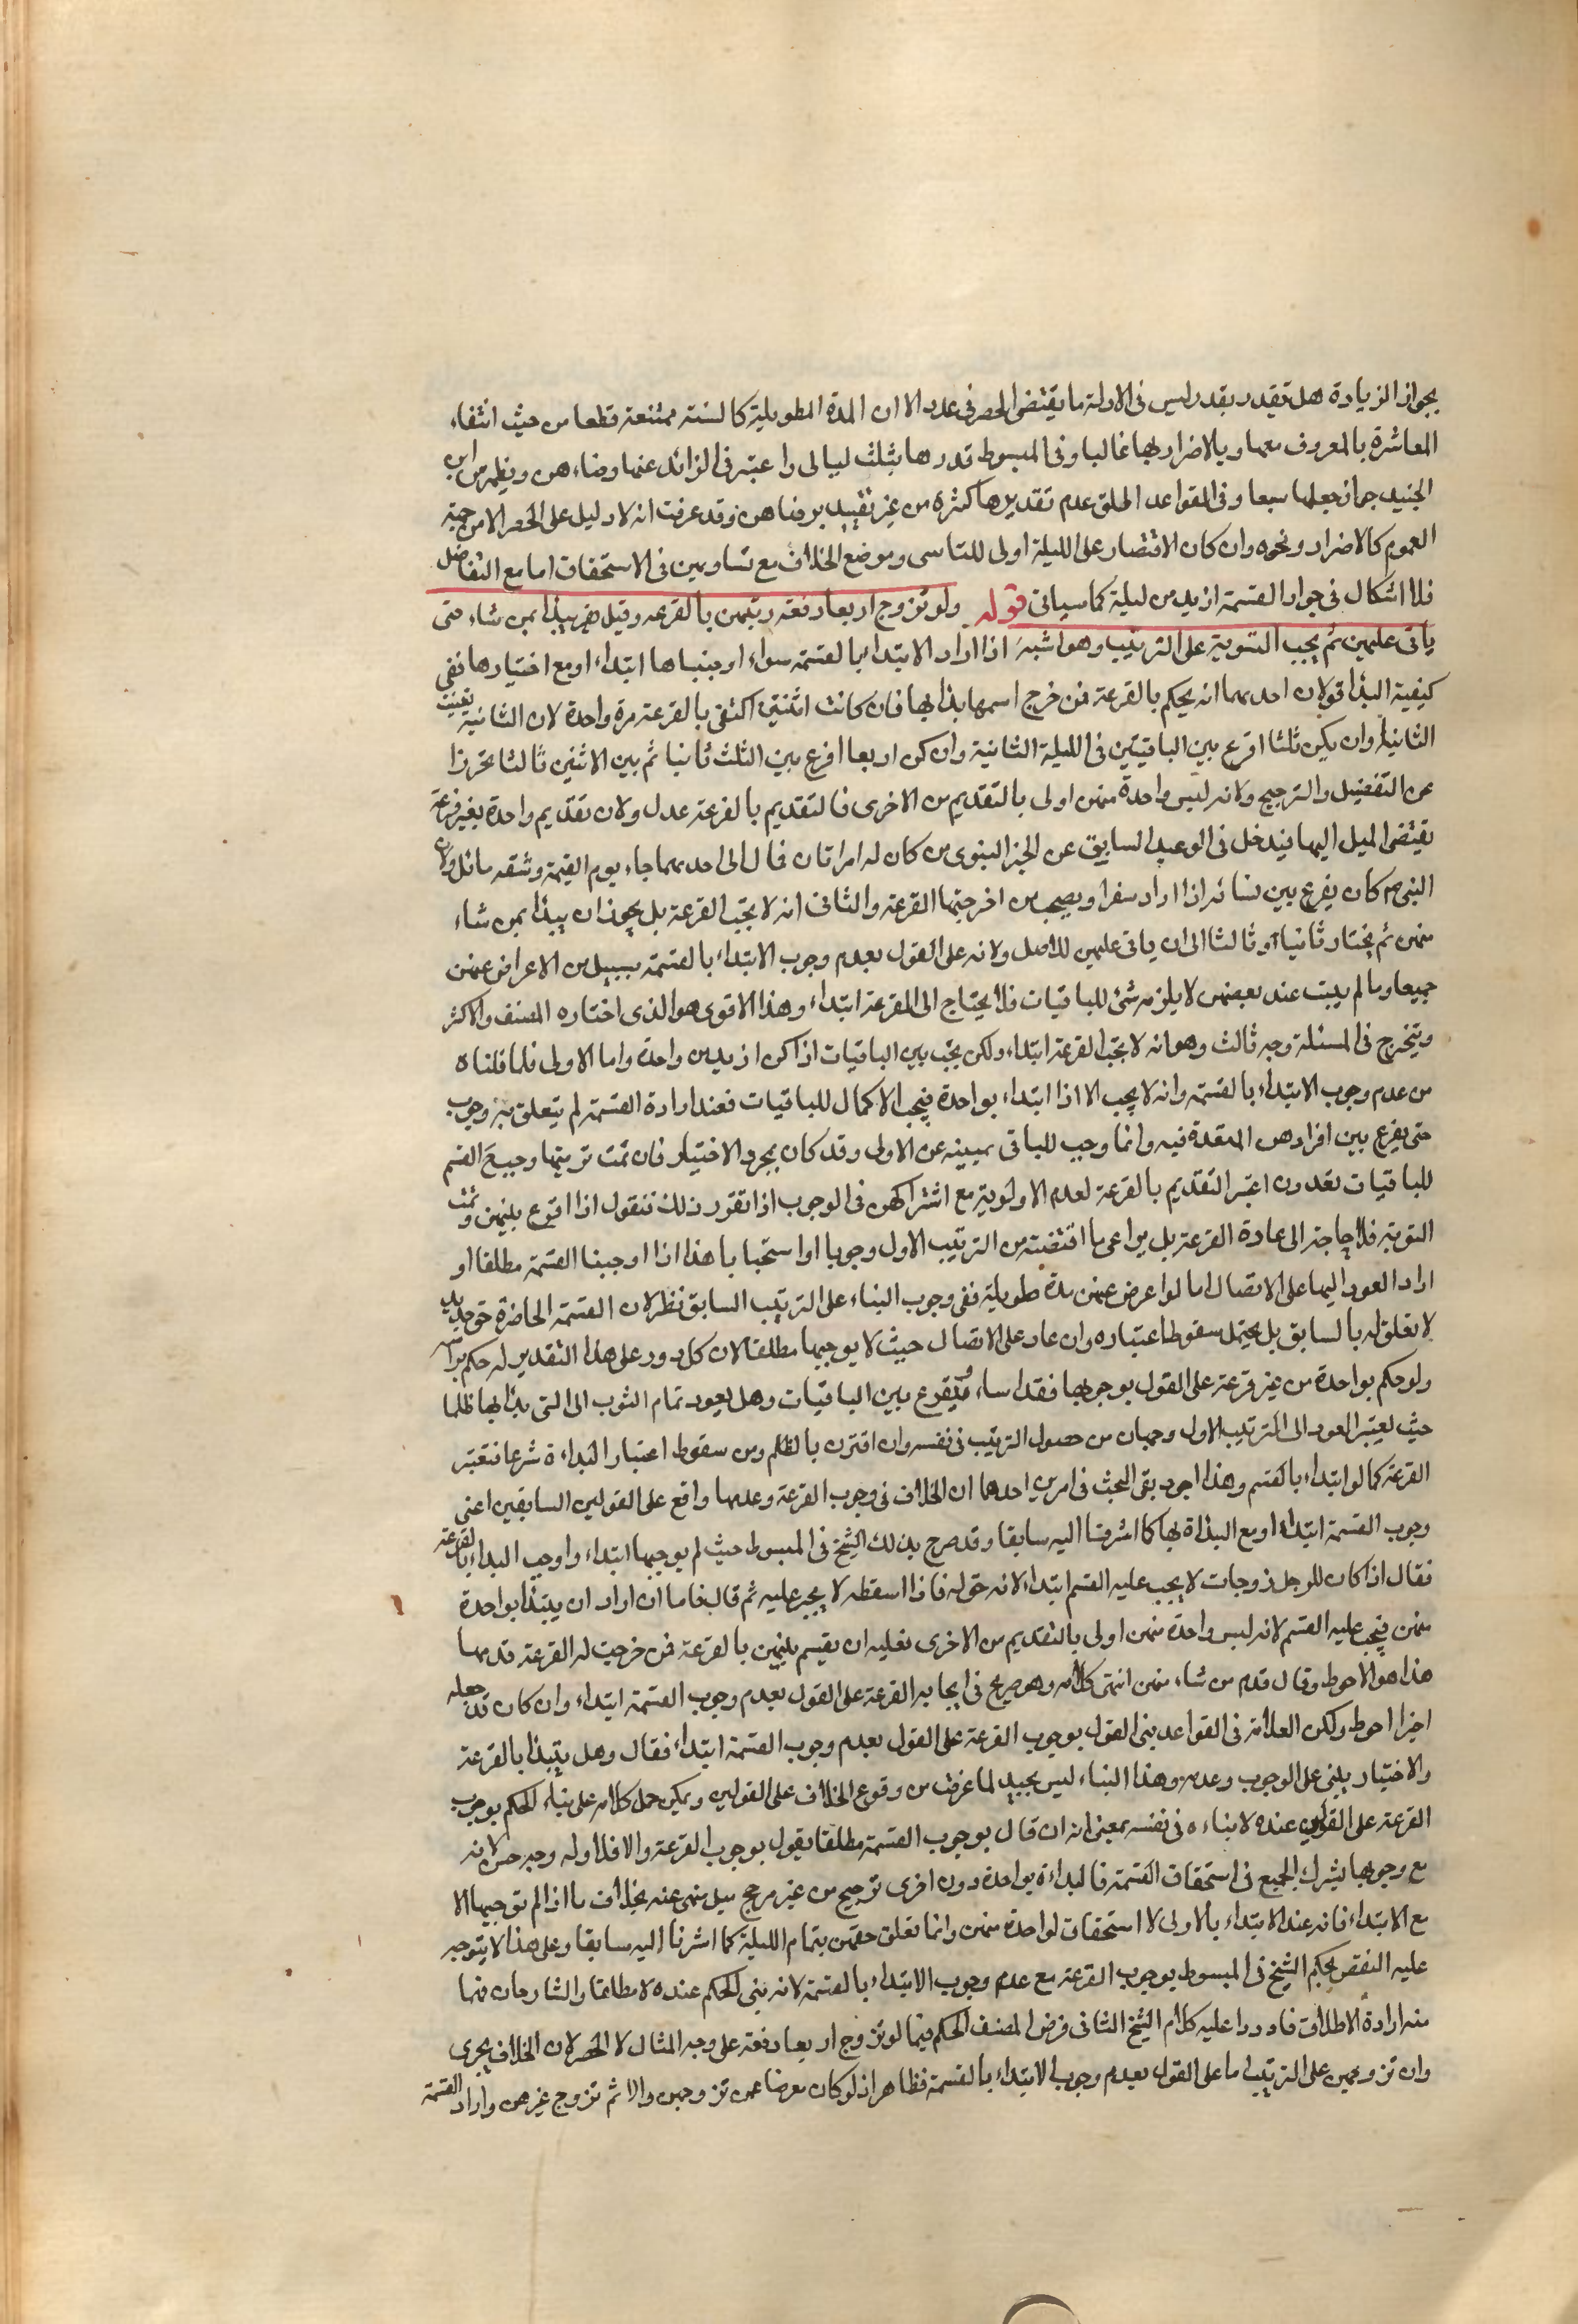 بجواز الزيادة هل تقيد ر بقد ر ليس فى الادلة ما يقتضى الحصر فى عدد الا ان المدة الطويلة كالسنة ممتنعة قطعا من حيث انتفاء
المعاشرة بالمعروف معها وبالاضرار بها غالبا وفى المبسوط قدرها بثلث ليالى واعتبر فى الزائد عنها رضاءهن ويظهر من ابن
الجنيد جواز جعلها سبعا وفى القواعد اطلق عدم تقديرها كثرة من غير تقييد برضاهن وقد عرفت انه لا دليل على الحصر الا من جهة
العموم كالاضرار ونحوه وان كان الاقتصار على الليلة اولى للتاسى وموضع الخلاف مع تساويهن فى الاستحقاق اما مع التفاضل
فلا اشكال فى جواز القسمة ازيد من ليلة كما سياتى قوله ولو تزوج اربعا دفعة رتبهن بالقرعه وقيل يبدأ بمن شاء حتى
ياتى عليهن ثم يجب التسوية على الترتيب وهو اشبه اذا اراد الابتداء بالقسمة سواء اوجبناها ابتداء او مع اختيارها ففى
كيفية البدأة قولان احدهما انه يحكم بالقرعة فمن خرج اسمها بدأ بها فان كانت اثنتين اكتفى بالقرعة مرة واحدة لان الثانية تعينت
الثانيا وان يكن ثلثا اقرع بين الباقيتين فى الليلة الثانية وان كن اربعا اقرع بين الثلث ثانيا ثم بين الاثنين ثالثا تحرزا
عن التفضيل والترجيح ولانه ليس واحدة منهن اولى بالتقديم من الاخرى فالتقديم بالقرعة عدل ولان تقديم واحدة بغير قرعة
يقتضى الميل اليها فيدخل فى الوعيد السابق عن الخبر النبوى من كان له امراتان فمال الى احدهما جاء يوم القيمة وشقه مائل ولان
النبى ص كان يقرع بين نسائه اذا اراد سفرا ويصحب من اخرجتها القرعة والثانى انه لا يجب القرعة بل يجوز ان يبدأ بمن شاء
منهن ثم يختار ثانيا او ثالثا الى ان ياتى عليهن للاصل ولانه على القول بعدم وجوب الابتداء بالقسمة بسبيل من الاعراض عنهن
جميعا وما لم يبت عند بعضهن لا يلزمه شئ للباقيات فلا يحتاج الى القرعة ابتداء وهذا الاقوى هو الذى اختاره المصنف والاكثر
ويتخرج فى المسئلة وجه ثالث وهو انه لا تجب القرعة ابتداء ولكن تجب بين الباقيات اذا كن ازيد من واحدة واما الاولى فلما قلناه
من عدم وجوب الابتداء بالقسمة وانه لا يجب الا اذا ابتداء بواحدة فيجب الاكمال للباقيات فعند ارادة القسمة لم يتعلق به وجوب
حتى يقرع بين افرادهن المتعددة فيه وانما وجب للباقى بمبيته عن الاولى وقد كان بمجرد الاختيار فان تمت نوبتها وجب القسم
للباقيات بعدون اعتبر التقديم بالقرعة لعدم الاولوية مع اشتراكهن فى الوجوب اذا تقرر ذلك فنقول اذا اقرع بينهن وتمت
النوبة فلا حاجة الى اعادة القرعة بل يراعى ما اقتضته من الترتيب الاول وجوبا او استحبابا هذا اذا اوجبنا القسمة مطلقا او
اراد العود اليها على الاتصال اما لو اعرض عنهن مدة طويلة ففى وجوب البناء على الترتيب السابق نظر لان القسمة الحاضرة حق جديد
لا تعلق له بالسابق بل يحتمل سقوط اعتباره وان عاد على الاتصال حيث لا يوجبها مطلقا لان كل دور على هذا التقدير له حكم براسه
ولو حكم بواحدة من غير قرعة على القول بوجوبها فقد اساء ويقرع بين الباقيات وهل يعود تمام النوب الى التى بدأ بها ظلما
حيث يعتبر العود الى الترتيب الاول وجهان من حصول الترتيب فى نفسه وان اقترن بالظلم ومن سقوط اعتبار البداءة شرعا فتعتبر
القرعة كما لو ابتداء بالقسم وهذا اجود بقى البحث فى امرين احدهما ان الخلاف فى وجوب القرعة وعدمها واقع على القولين السابقين اعنى
وجوب القسمة ابتداء او مع البدأة بها كما اشرنا اليه سابقا وقد صرح بذلك الشيخ فى المبسوط حيث لم يوجبها ابتداء واوجب البداء بالقرعة
فقال اذا كان للرجل زوجات لا يجب عليه القسم ابتداء لانه حق له فاذا اسقطه لا يجبر عليه ثم قال فاما ان اراد ان يبتدأ بواحدة
منهن فيجب عليه القسم لانه ليس واحدة منهن اولى بالتقديم من الاخرى فعليه ان يقسم بينهن بالقرعة فمن خرجت له القرعة قدمها
هذا هو الاحوط وقال قدم من شاء منهن انتهى كلامه وهو صريح فى ايجابه القرعة على القول بعدم وجوب القسمة ابتداء وان كان قد جعله
اخيرا احوط ولكن العلامة فى القواعد بنى القول بوجوب القرعة على القول بعدم وجوب القسمة ابتداء فقال وهل يبتدأ بالقرعة
والاختيار يبنى على الوجوب وعدمه وهذا البناء ليس بجيد لما عرفت من وقوع الخلاف على القولين ويمكن حمل كلامه على بناء الحكم بوجوب
القرعة على القولين عنده لا بناءه فى نفسه بمعنى انه ان قال بوجوب القسمة مطلقا يقول بوجوب القرعة والا فلا وله وجه حسن لانه
مع وجوبها يشرك الجميع فى استحقاق القسمة فالبداءة بواحدة دون اخرى ترجيح من غير مرجح ميل منهى عنه بخلاف ما اذا لم توجبها الا
مع الابتداء فانه عند الابتداء بالاولى لا استحقاق لواحدة منهن وانما تعلق حقهن بتمام الليلة كما اشرنا اليه سابقا وعلى هذا لا يتوجه
عليه النقض بحكم الشيخ فى المبسوط بوجوب القرعة مع عدم وجوب الابتداء بالقسمة لانه بنى الحكم عنده لا مطلقا والشارحان فهما
منه ارادة الاطلاق فاوردا عليه كلام الشيخ الثانى فرض المصنف الحكم فيما لو تزوج اربعا دفعة على وجه المثال لا الحصر لان الخلاف يجرى
وان تزوجهن على الترتيب اما على القول بعدم وجوب الابتداء بالقسمة فظاهر اذ لو كان معرضا عمن تزوجهن والا ثم تزوج غيرهن واراد القسمة